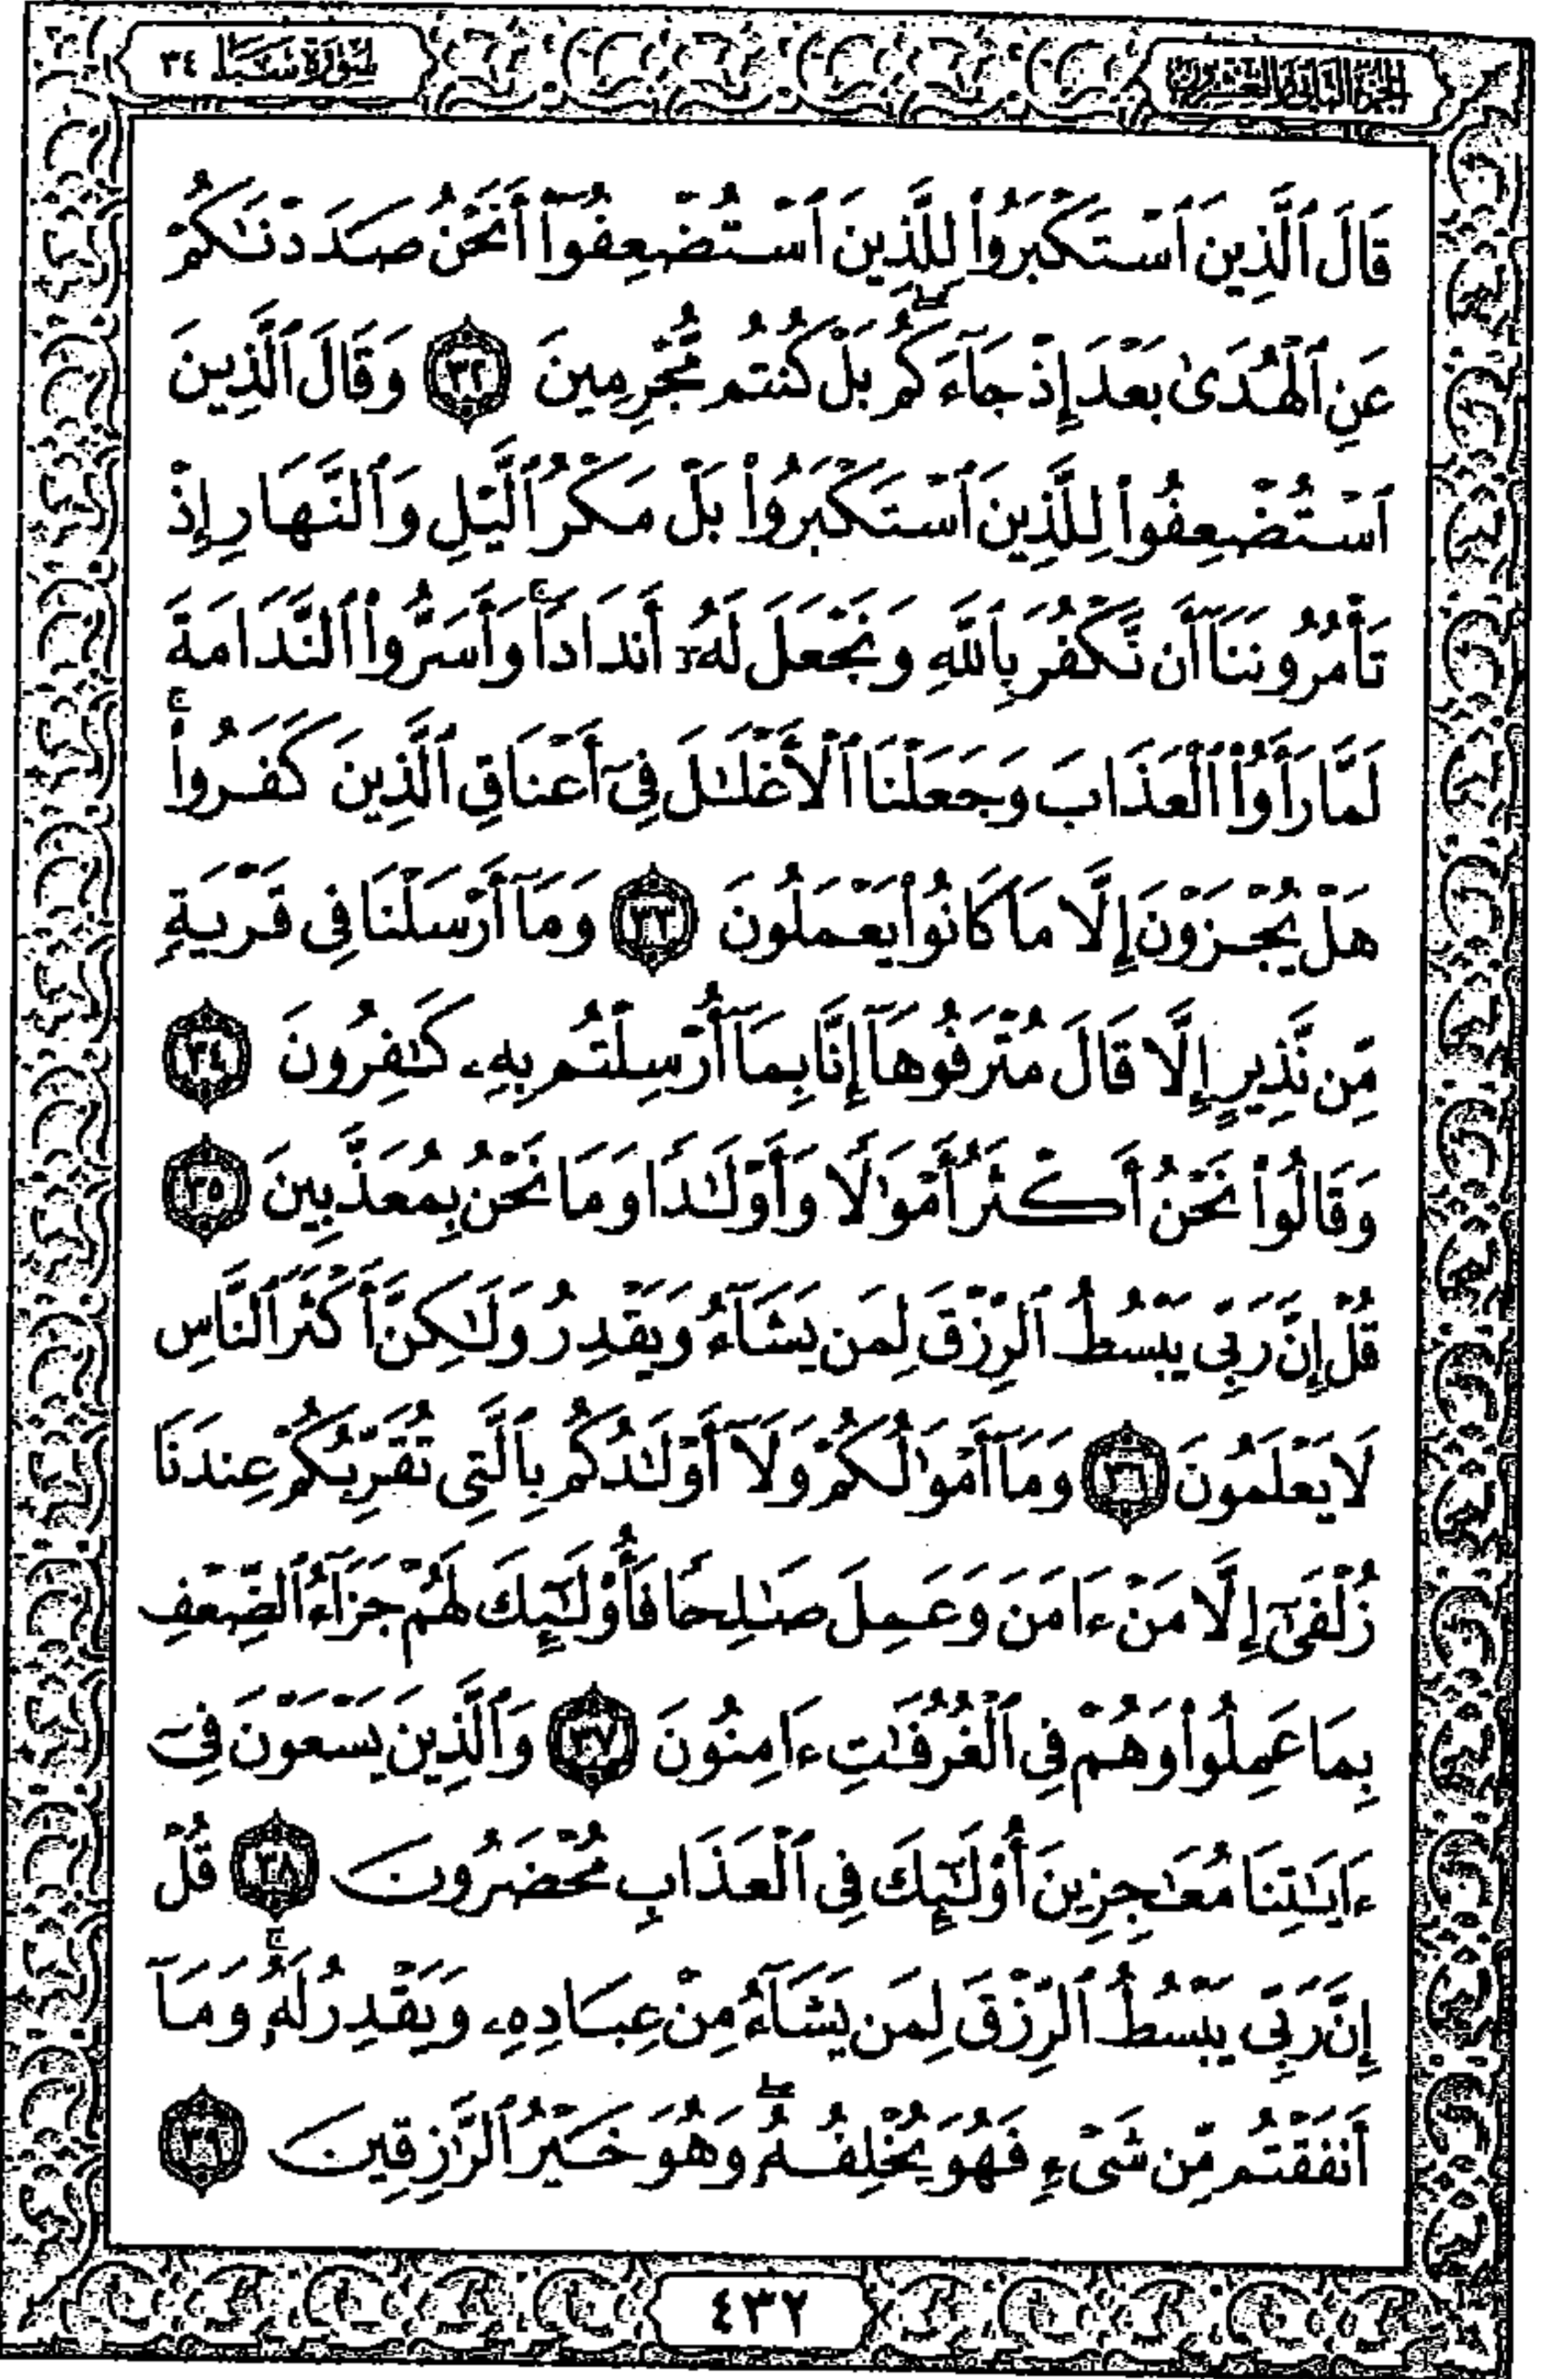 الجزء الثاني والعشرون
سورة سبإ ٣٤
قَالَ ٱلَّذِينَ ٱسْتَكْبَرُوا۟ لِلَّذِينَ ٱسْتُضْعِفُوٓا۟ أَنَحْنُ صَدَدْنَٰكُمْ
عَنِ ٱلْهُدَىٰ بَعْدَ إِذْ جَآءَكُم ۖ بَلْ كُنتُم مُّجْرِمِينَ ٣٢ وَقَالَ ٱلَّذِينَ
ٱسْتُضْعِفُوا۟ لِلَّذِينَ ٱسْتَكْبَرُوا۟ بَلْ مَكْرُ ٱلَّيْلِ وَٱلنَّهَارِ إِذْ
تَأْمُرُونَنَآ أَن نَّكْفُرَ بِٱللَّهِ وَنَجْعَلَ لَهُۥٓ أَندَادًا ۚ وَأَسَرُّوا۟ ٱلنَّدَامَةَ
لَمَّا رَأَوُا۟ ٱلْعَذَابَ وَجَعَلْنَا ٱلْأَغْلَٰلَ فِىٓ أَعْنَاقِ ٱلَّذِينَ كَفَرُوا۟ ۚ
هَلْ يُجْزَوْنَ إِلَّا مَا كَانُوا۟ يَعْمَلُونَ ٣٣ وَمَآ أَرْسَلْنَا فِى قَرْيَةٍ
مِّن نَّذِيرٍ إِلَّا قَالَ مُتْرَفُوهَآ إِنَّا بِمَآ أُرْسِلْتُم بِهِۦ كَٰفِرُونَ ٣٤
وَقَالُوا۟ نَحْنُ أَكْثَرُ أَمْوَٰلًا وَأَوْلَٰدًا وَمَا نَحْنُ بِمُعَذَّبِينَ ٣٥
قُلْ إِنَّ رَبِّى يَبْسُطُ ٱلرِّزْقَ لِمَن يَشَآءُ وَيَقْدِرُ وَلَٰكِنَّ أَكْثَرَ ٱلنَّاسِ
لَا يَعْلَمُونَ ٣٦ وَمَآ أَمْوَٰلُكُمْ وَلَآ أَوْلَٰدُكُم بِٱلَّتِى تُقَرِّبُكُمْ عِندَنَا
زُلْفَىٰٓ إِلَّا مَنْ ءَامَنَ وَعَمِلَ صَٰلِحًا فَأُو۟لَٰٓئِكَ لَهُمْ جَزَآءُ ٱلضِّعْفِ
بِمَا عَمِلُوا۟ وَهُمْ فِى ٱلْغُرُفَٰتِ ءَامِنُونَ ٣٧ وَٱلَّذِينَ يَسْعَوْنَ فِىٓ
ءَايَٰتِنَا مُعَٰجِزِينَ أُو۟لَٰٓئِكَ فِى ٱلْعَذَابِ مُحْضَرُونَ ٣٨ قُلْ
إِنَّ رَبِّى يَبْسُطُ ٱلرِّزْقَ لِمَن يَشَآءُ مِنْ عِبَادِهِۦ وَيَقْدِرُ لَهُۥ ۚ وَمَآ
أَنفَقْتُم مِّن شَىْءٍ فَهُوَ يُخْلِفُهُۥ ۖ وَهُوَ خَيْرُ ٱلرَّٰزِقِينَ ٣٩
٤٣٢